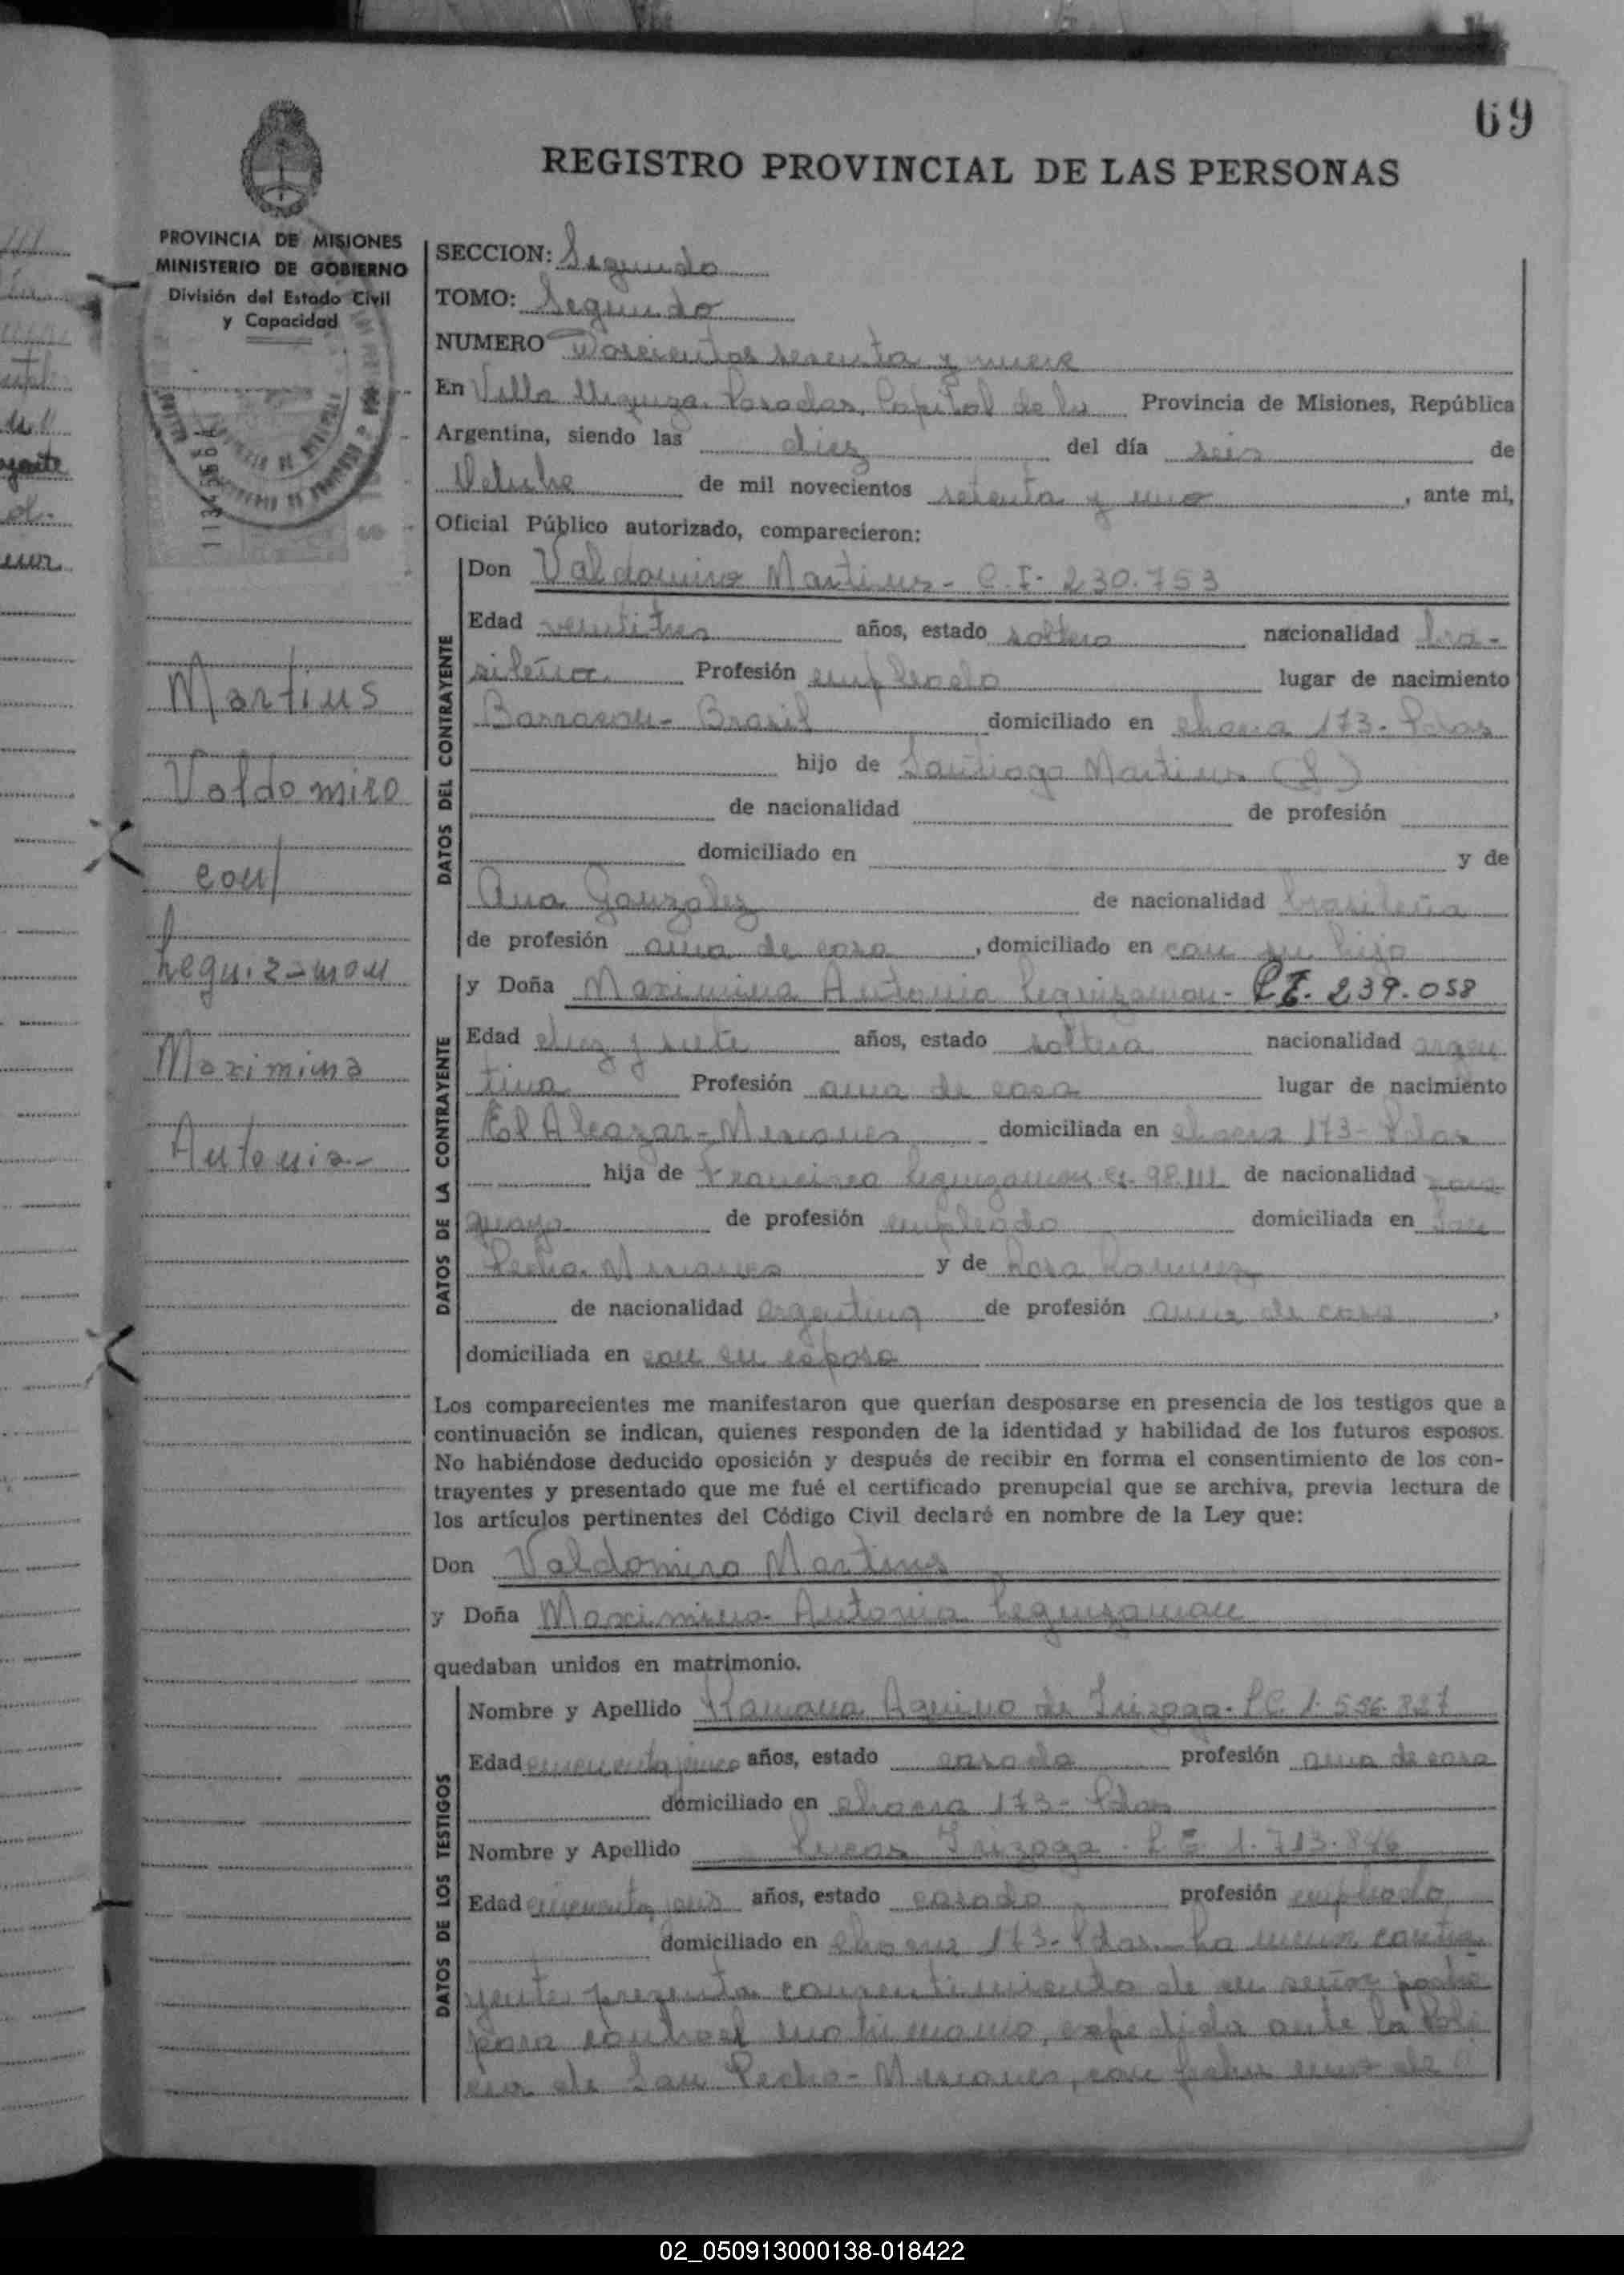 69
REGISTRO PROVINCIAL DE LAS PERSONAS
PROVINCIA DE MISIONES
MINISTERIO DE GOBIERNO
División del Estado Civil
y Capacidad
SECCION: Segundo
TOMO: Segundo
NUMERO Doscientos sesenta y nueve
En Villa Urquiza, Posadas, Capital de la Provincia de Misiones, República
Argentina, siendo las diez del día seis de
Octubre de mil novecientos setenta y uno, ante mi,
Oficial Público autorizado, comparecieron:
DATOS DEL CONTRAYENTE
Don Valdomiro Martins - C.I. 230.753
Edad veintitres años, estado soltero nacionalidad bra-
sileño Profesión empleado lugar de nacimiento
Barracon - Brasil domiciliado en chacra 173 - Posas
hijo de Santiago Martins (f)
de nacionalidad de profesión
domiciliado en y de
Ana Gonzalez de nacionalidad brasileña
de profesión ama de casa, domiciliado en con su hijo
DATOS DE LA CONTRAYENTE
y Doña Maximina Antonia Leguizamon - C.I. 239.058
Edad diez y siete años, estado soltera nacionalidad argen
tina Profesión ama de casa lugar de nacimiento
El Alcazar - Misiones domiciliada en chacra 173 - Pdas
hija de Francisco Leguizamon 98.111 de nacionalidad para
guaya de profesión empleado domiciliada en San
Pedro. Misiones y de Rosa Ramirez
de nacionalidad argentina de profesión ama de casa,
domiciliada en con su esposo
Los comparecientes me manifestaron que querían desposarse en presencia de los testigos que a
continuación se indican, quienes responden de la identidad y habilidad de los futuros esposos.
No habiéndose deducido oposición y después de recibir en forma el consentimiento de los con-
trayentes y presentado que me fué el certificado prenupcial que se archiva, previa lectura de
los artículos pertinentes del Código Civil declaré en nombre de la Ley que:
Don Valdomiro Martins
y Doña Maximina Antonia Leguizamon
quedaban unidos en matrimonio.
DATOS DE LOS TESTIGOS
Nombre y Apellido Ramona Aquino de Irizaga - L.C. 1.556.827
Edad cincuenta años, estado casada profesión ama de casa
domiciliado en chacra 173 - Pdas
Nombre y Apellido Lucas Irizaga - L E 1.713.846
Edad cincuenta años, estado casado profesión empleado
domiciliado en chacra 173 - Pdas. La menor contra
yente presenta consentimiento de su señor padre
para contraer matrimonio, expedida ante la Poli
cia de San Pedro - Misiones, con fecha uno de
Martins
Valdomiro
con/
Leguiz-mon
Maximina
Antonia-
02_050913000138-018422